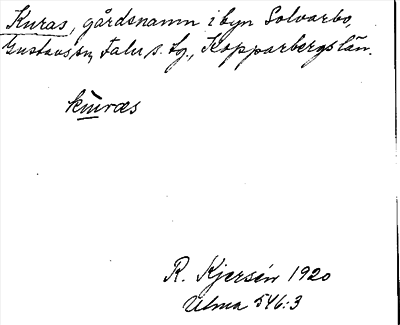 Kuras, gårdsnamn i byn Solvarbo,
Gustavs sn, Falu s. tg., Kopparbergs län.
kùræs
R. Kjersén 1920
Ulma 546:3